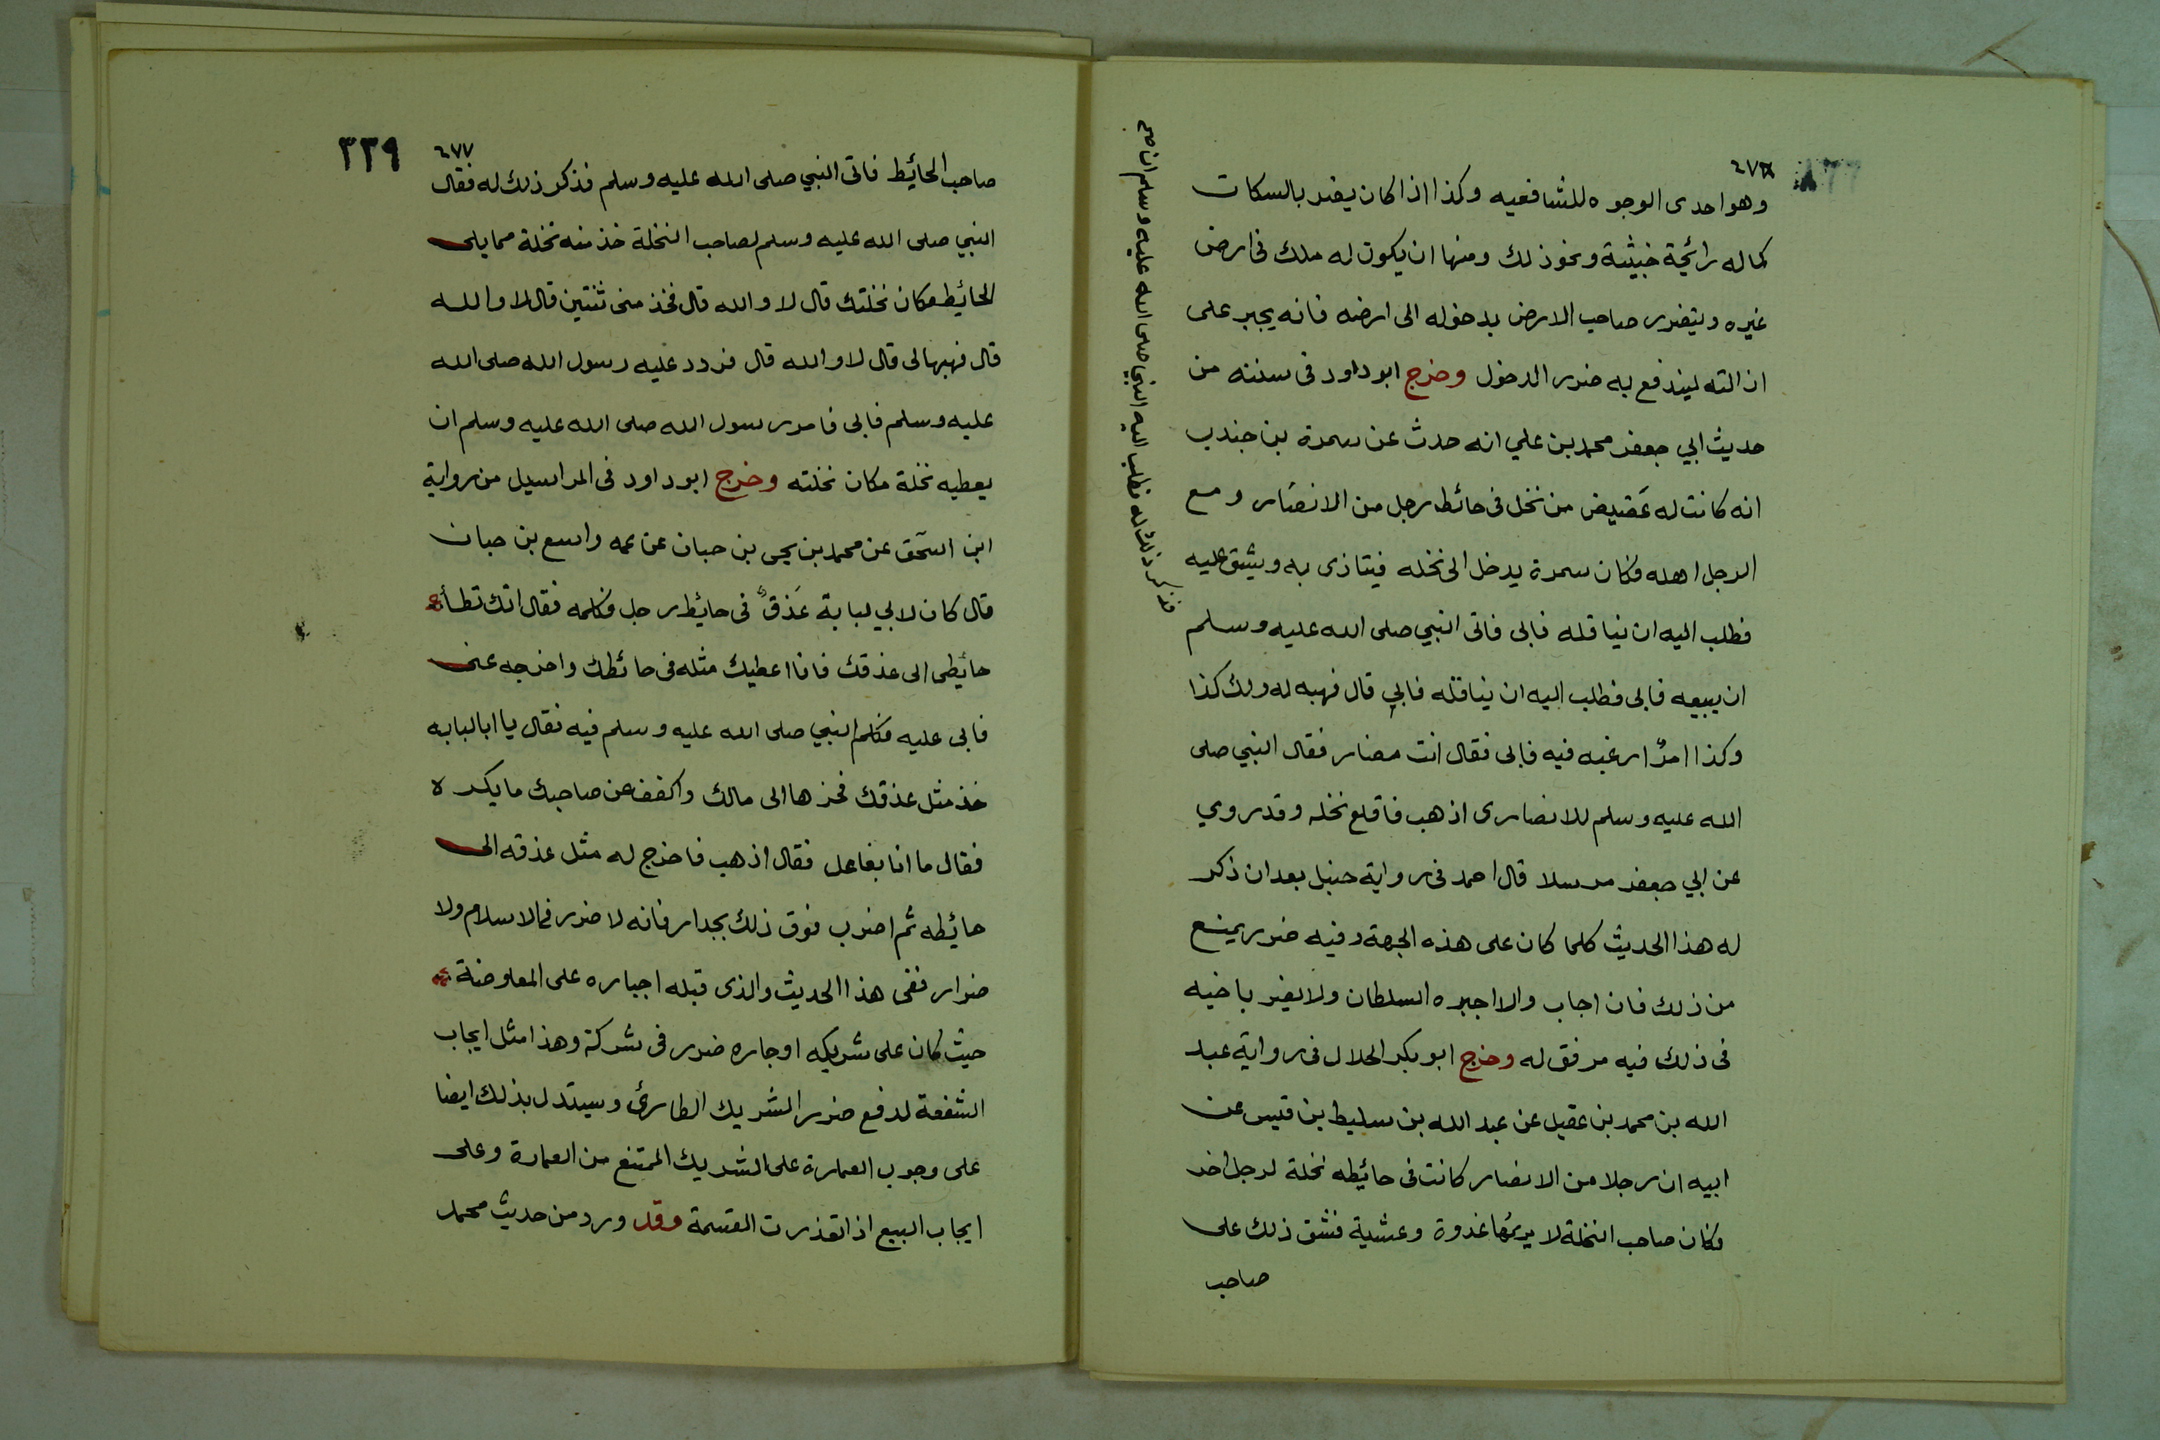 ٦٧٦
وهو احدى الوجوه للشافعيه وكذا اذا كان يضر بالسكات
كماله رائحة خبيثة ونحو ذلك ومنها ان يكون له ملك فى ارض
غيره ويتضرر صاحب الارض بدخوله الى ارضه فانه يجبر على
ازالته ليندفع به ضرر الدخول وخرج ابو داود فى سننه من
حديث ابي جعفر محمد بن علي انه حدث عن سمرة بن جندب
انه كانت له عَضيض من نخل فى حائط رجل من الانصار ومع
الرجل اهله فكان سمرة يدخل الى نخله فيتاذى به ويشق عليه
فطلب اليه ان يناقله فابى فاتى النبي صلى الله عليه وسلم
فذكر ذلك له فطلب اليه النبي صلى الله عليه وسلم ان
ان يبيعه فابى فطلب اليه ان يناقله فابي قال فهبه له ولك كذا
وكذا امرًا رغبه فيه فابى فقال انت مضار فقال النبي صلى
الله عليه وسلم للانصارى اذهب فاقلع نخله وقد روي
عن ابي جعفر مرسلا قال احمد فى رواية حنبل بعد ان ذكر
له هذا الحديث كلما كان على هذه الجهة وفيه ضرر يمنع
من ذلك فان اجاب والا اجبره السلطان ولا يضر باخيه
فى ذلك فيه مرفق له وخرج ابو بكر الخلال فى رواية عبد
الله بن محمد بن عقيل عن عبد الله بن سليط بن قيس عن
ابيه ان رجلا من الانصار كانت فى حائيطه نخلة لرجل اخر
فكان صاحب النخلة لا يريمُها غدوة وعشية فشق ذلك على
صاحب
٣٣٩
٦٧٧
صاحب الحائيط فاتى النبي صلى الله عليه وسلم فذكر ذلك له فقال
النبي صلى الله عليه وسلم لصاحب النخلة خذ منه نخلة مما يلى
الحائيط مكان نخلتك قال لا والله قال فخذ منى ثنتين قال لا والله
قال فهبها لى قال لا والله قال فردد عليه رسول الله صلى الله
عليه وسلم فابى فامر رسول الله صلى الله عليه وسلم ان
يعطيه نخلة مكان نخلته وخرج ابو داود فى المراسيل من رواية
ابن اسحٓق عن محمد بن يحيى بن حبان عن عمه واسع بن حبان
قال كان لابي لبابة عَذقٌ فى حايُط رجل فكلمه فقال انك تطأ
حائيطى الى عذقك فانا اعطيك مثله فى حائطك واخرجه عنى
فابى عليه فكلم النبي صلى الله عليه وسلم فيه فقال يا ابا لبابه
خذ مثل عذقك فحزها الى مالك واكفف عن صاحبك ما يكره
فقال ما انا بفاعل فقال اذهب فاخرج له مثل عذقه الى
حائيطه ثم اضرب فوق ذلك بجدار فانه لا ضرر فى الاسلام ولا
ضرار ففى هذا الحديث والذى قبله اجباره على المعاوضة
حيث كان على شريكه او جاره ضرر فى شركة وهذا مثل ايجاب
الشفعة لدفع ضرر الشريك الطارئ ويستدل بذلك ايضا
على وجوب العمارة على الشريك الممتنع من العمارة وعلى
ايجاب البيع اذا تعذرت القسمة وقد ورد من حديث محمد